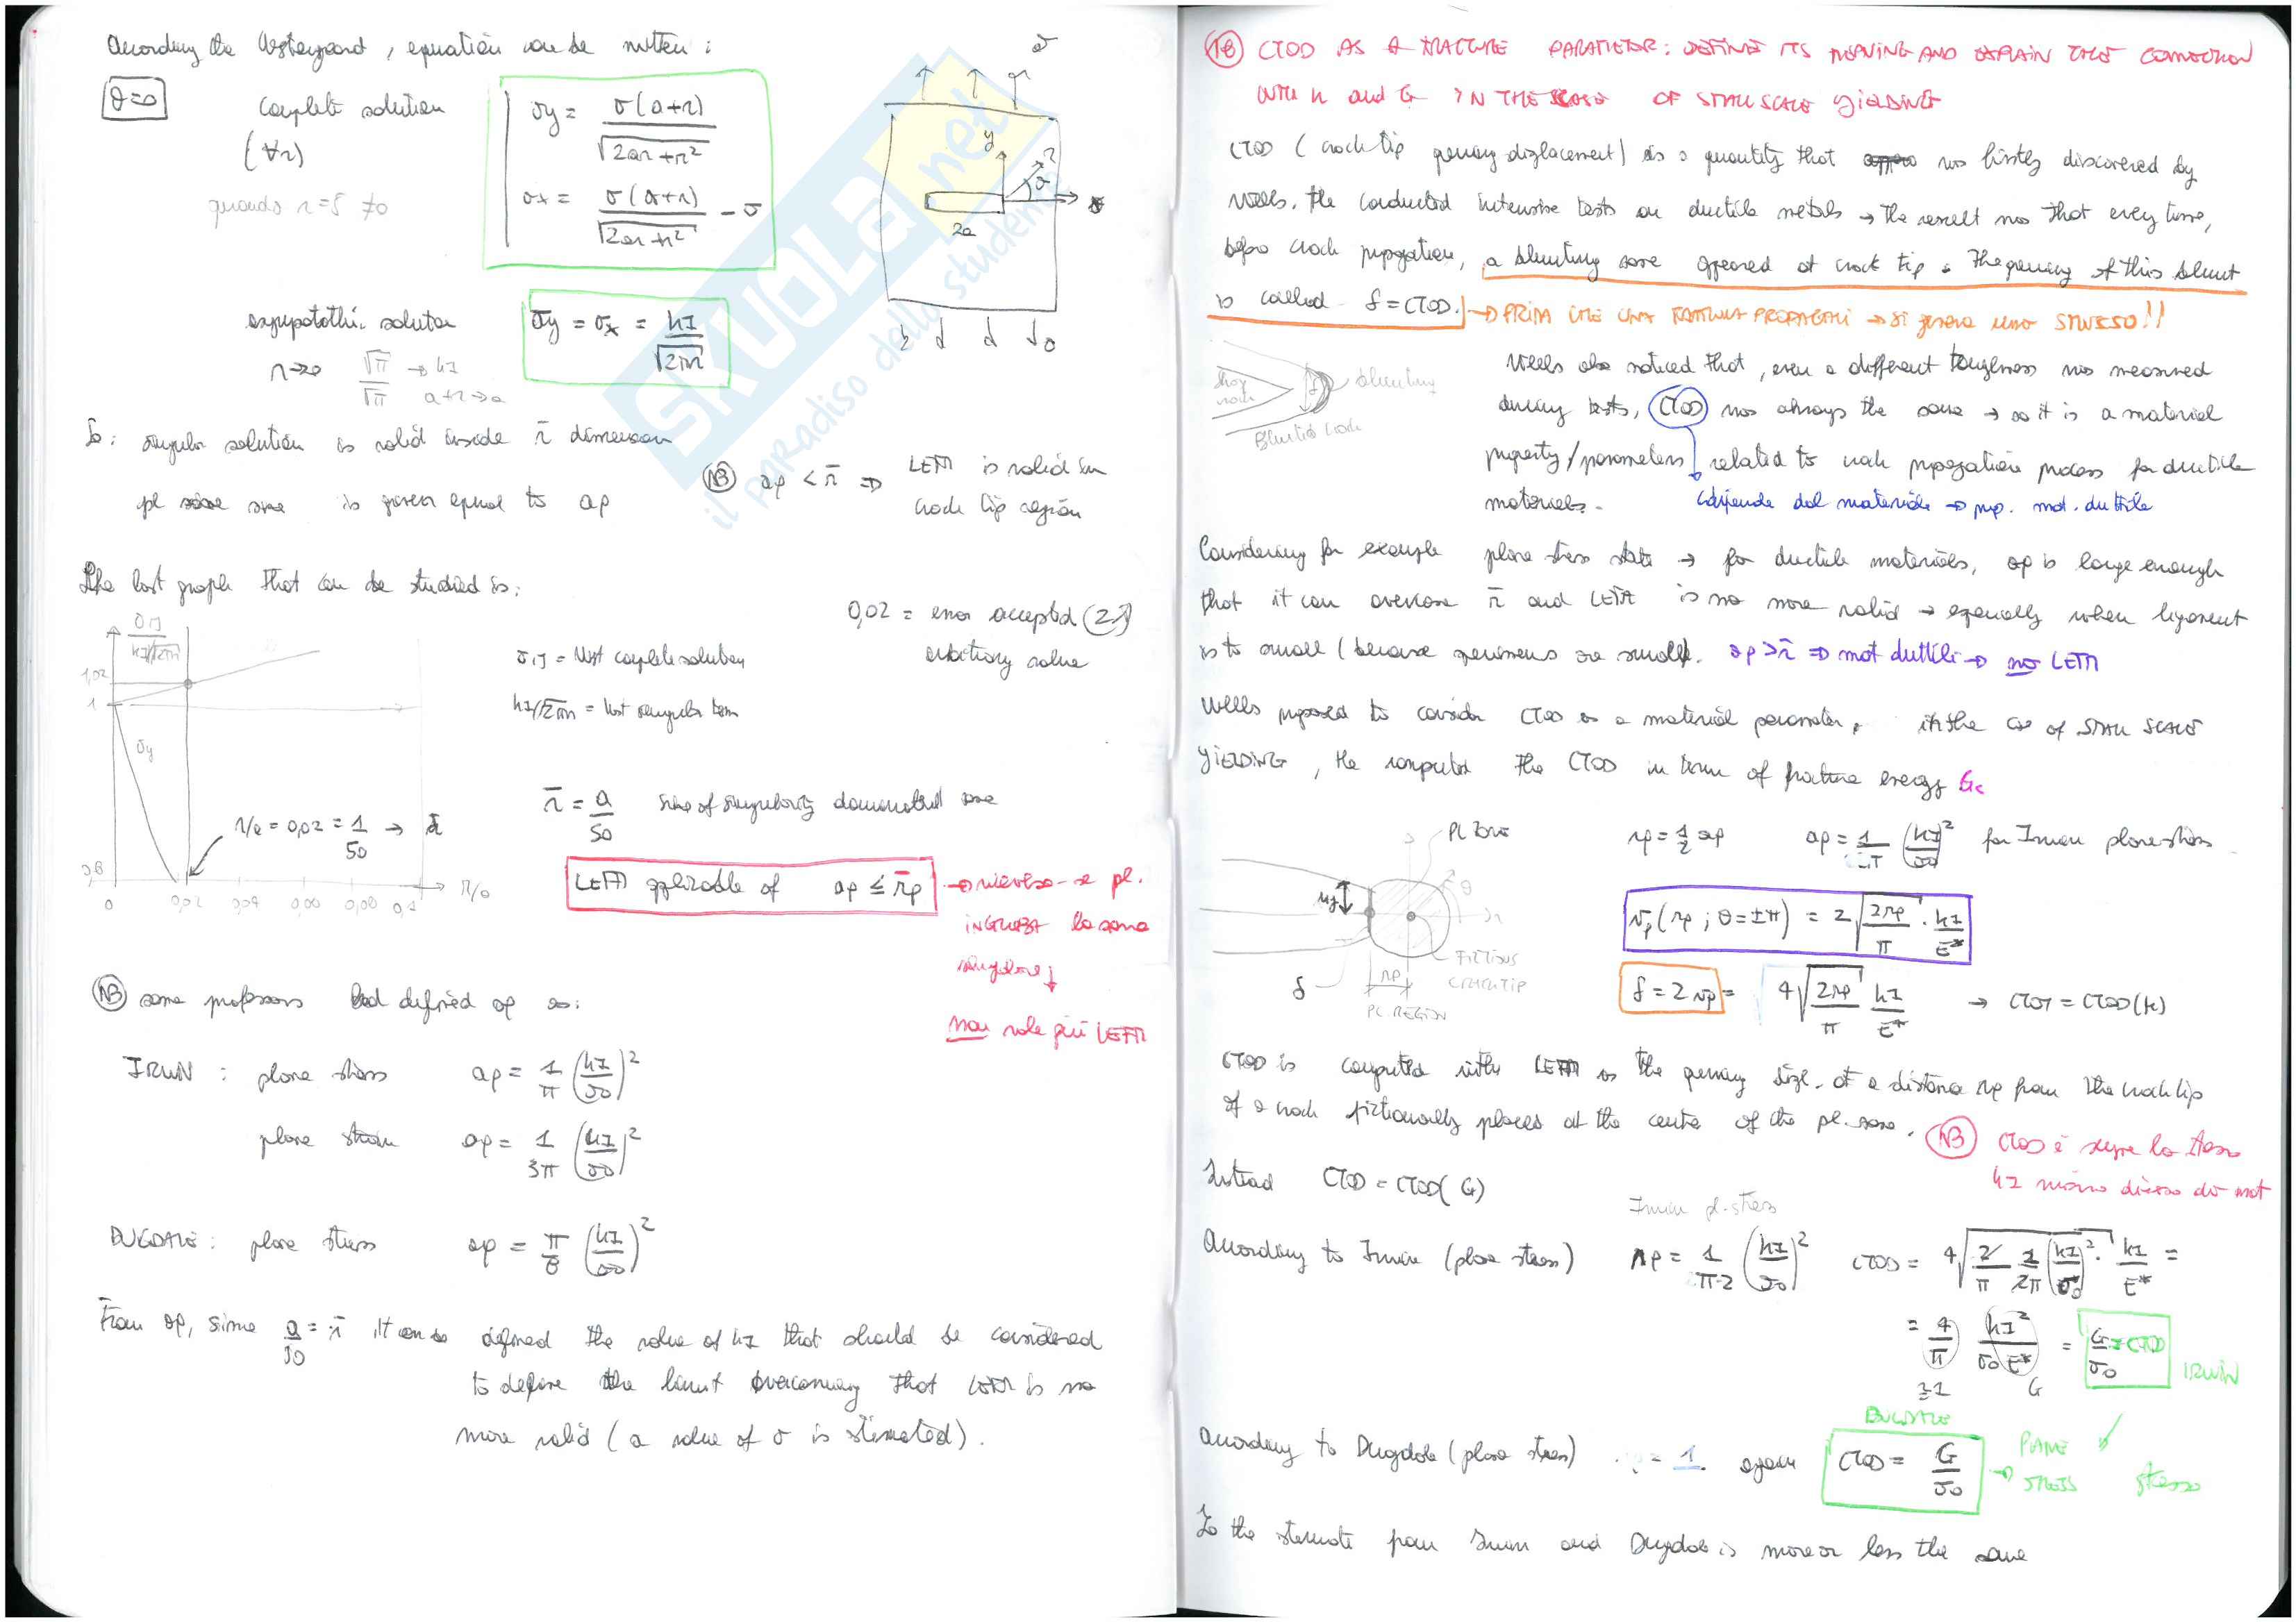 According the Westergaard, equation can be written:
θ=0
complete solution
(∀r)
quando r=δ ≠0
σy = σ(a+r) / √(2ar+r²)
σx = σ(a+r) / √(2ar+r²) - σ
σ
y
r
θ
x
2a
σ
asympotothic solution
r→0 √π/√π → kI
a+r→a
σy = σx = kI / √(2πr)
So: singular solution is valid inside r̄ dimension
pl zone is given equal to ap
NB ap < r̄ ⇒ LEFM is valid in
crack tip region
The last graph that can be studied is:
0,02 = error accepted (2%)
arbitrary value
σIJ / kI/√2πr
1,02
1
σy
0,8
0 0,02 0,04 0,06 0,08 0,1 r/a
σIJ = West complete solution
kI/√2πr = West singular term
r/a = 0,02 = 1/50 → r̄
r̄ = a/50 size of singularity dominated zone
LEFM applicable if ap ≤ r̄p
NB some professors had defined ap as:
IRWIN: plane stress ap = 1/π (kI/σ0)²
plane strain ap = 1/3π (kI/σ0)²
DUGDALE: plane stress ap = π/8 (kI/σ0)²
From ap, since a/50 = r̄ it can be defined the value of kI that should be considered
to define the limit overcoming that LEFM is no
more valid (a value of σ is stimated).
→ se pl.
la zona
singolare ↓
non vale più LEFM
18 CTOD AS A FRACTURE PARAMETER: DEFINE ITS MEANING AND EXPLAIN THE CONNECTION
WITH K and G IN THE CASE OF SMALL SCALE YIELDING
CTOD (crack tip opening displacement) is a quantity that was firstly discovered by
Wells. He conducted intensive tests on ductile metals → the result was that every time,
before crack propagation, a blunting zone appeared at crack tip. The opening of this blunt
is called δ=CTOD. → PRIMA CHE UNA FRATTURA PROPAGHI → si genera uno STUESO!!
sharp crack
δ
blunting
Blunted crack
Wells also noticed that, even a different toughness was measured
during tests, CTOD was always the same → so it is a material
property/parameters related to crack propagation process for ductile
materials.
dipende dal materiale → prop. mat. duttile
Considering for example plane stress state → for ductile materials, ap is large enough
that it can overcome r̄ and LEFM is no more valid → especially when ligament
is to small (because specimens are small). ap>r̄ ⇒ mat duttili → no LEFM
Wells proposed to consider CTOD as a material parameter. in the case of SMALL SCALE
YIELDING, He computed the CTOD in term of fracture energy Gc
PL ZONE
θ
r
FICTIOUS
CRACK TIP
rp
δ
PL REGION
rp = 1/2 ap ap = 1/π (kI/σ0)² for Irwin plane stress
vp (rp; θ=±π) = 2 √(2rp/π) · kI/E*
δ = 2vp = 4 √(2rp/π) kI/E* → CTOT = CTOD(k)
CTOD is computed with LEFM as the opening size at a distance rp from the crack tip
of a crack fictionally places at the center of the pl. zone.
NB CTOD è sempre lo stesso
kI diverso da mat
Instead CTOD = CTOD(G)
Irwin pl. stress
According to Irwin (plane stress) rp = 1/π·2 (kI/σ0)² CTOD = 4 √(2/π 1/2π (kI/σ0)²) · kI/E* =
= 4/π kI²/σ0E* = G/σ0 = CTOD
≅1 G IRWIN
DUGDALE
According to Dugdale (plane stress) = 1 again CTOD = G/σ0 → PLANE STRESS ✓ stesso
So the stemate from Irwin and Dugdale is more or less the same
SKUOLA.net
il paradiso dello studente